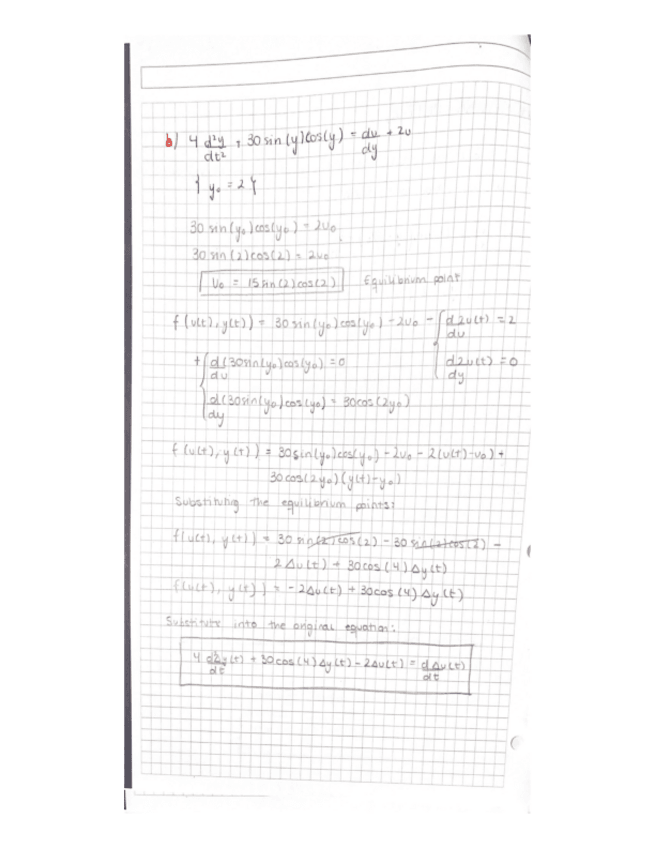 b) 4 d²y/dt² + 30 sin(y)cos(y) = du/dy + 2u
{ y₀ = 2 }
30 sin(y₀)cos(y₀) = 2u₀
30 sin(2)cos(2) = 2u₀
U₀ = 15 sin(2)cos(2) Equilibrium point
f(u(t), y(t)) = 30 sin(y₀)cos(y₀) - 2u₀ - { d2u(t)/du = 2
+ { d(30sin(y₀)cos(y₀)/du = 0 d2u(t)/dy = 0
d(30sin(y₀)cos(y₀)/dy = 30cos(2y₀)
f(u(t), y(t)) = 30sin(y₀)cos(y₀) - 2u₀ - 2(u(t)-u₀) +
30cos(2y₀)(y(t)-y₀)
Substituting the equilibrium points:
f(u(t), y(t)) = 30 sin(2)cos(2) - 30 sin(2)cos(2) -
2Δu(t) + 30cos(4)Δy(t)
f(u(t), y(t)) = -2Δu(t) + 30cos(4)Δy(t)
Substitute into the original equation:
4 d²y(t)/dt + 30cos(4)Δy(t) - 2Δu(t) = dΔu(t)/dt